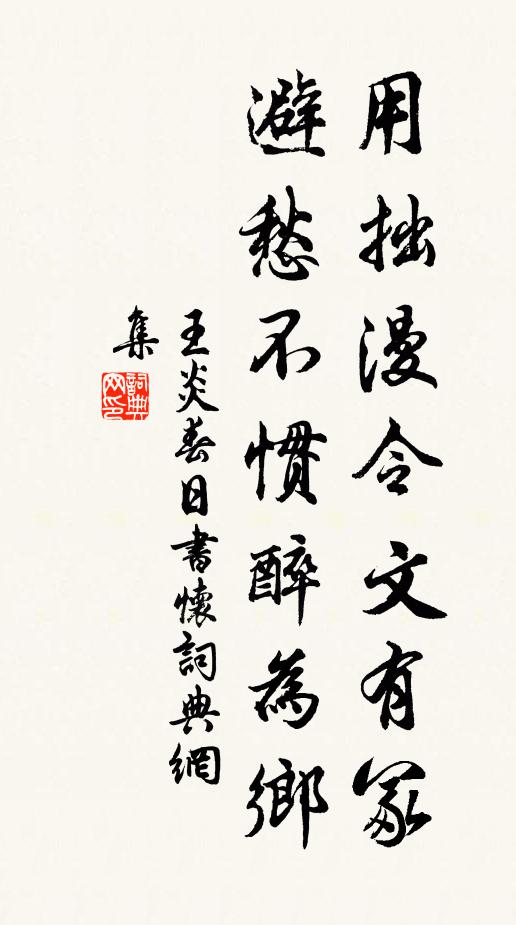 用拙漫令文有冢
避愁不慣醉為鄉
王炎春日書懷詞典網
集
詞典
网印